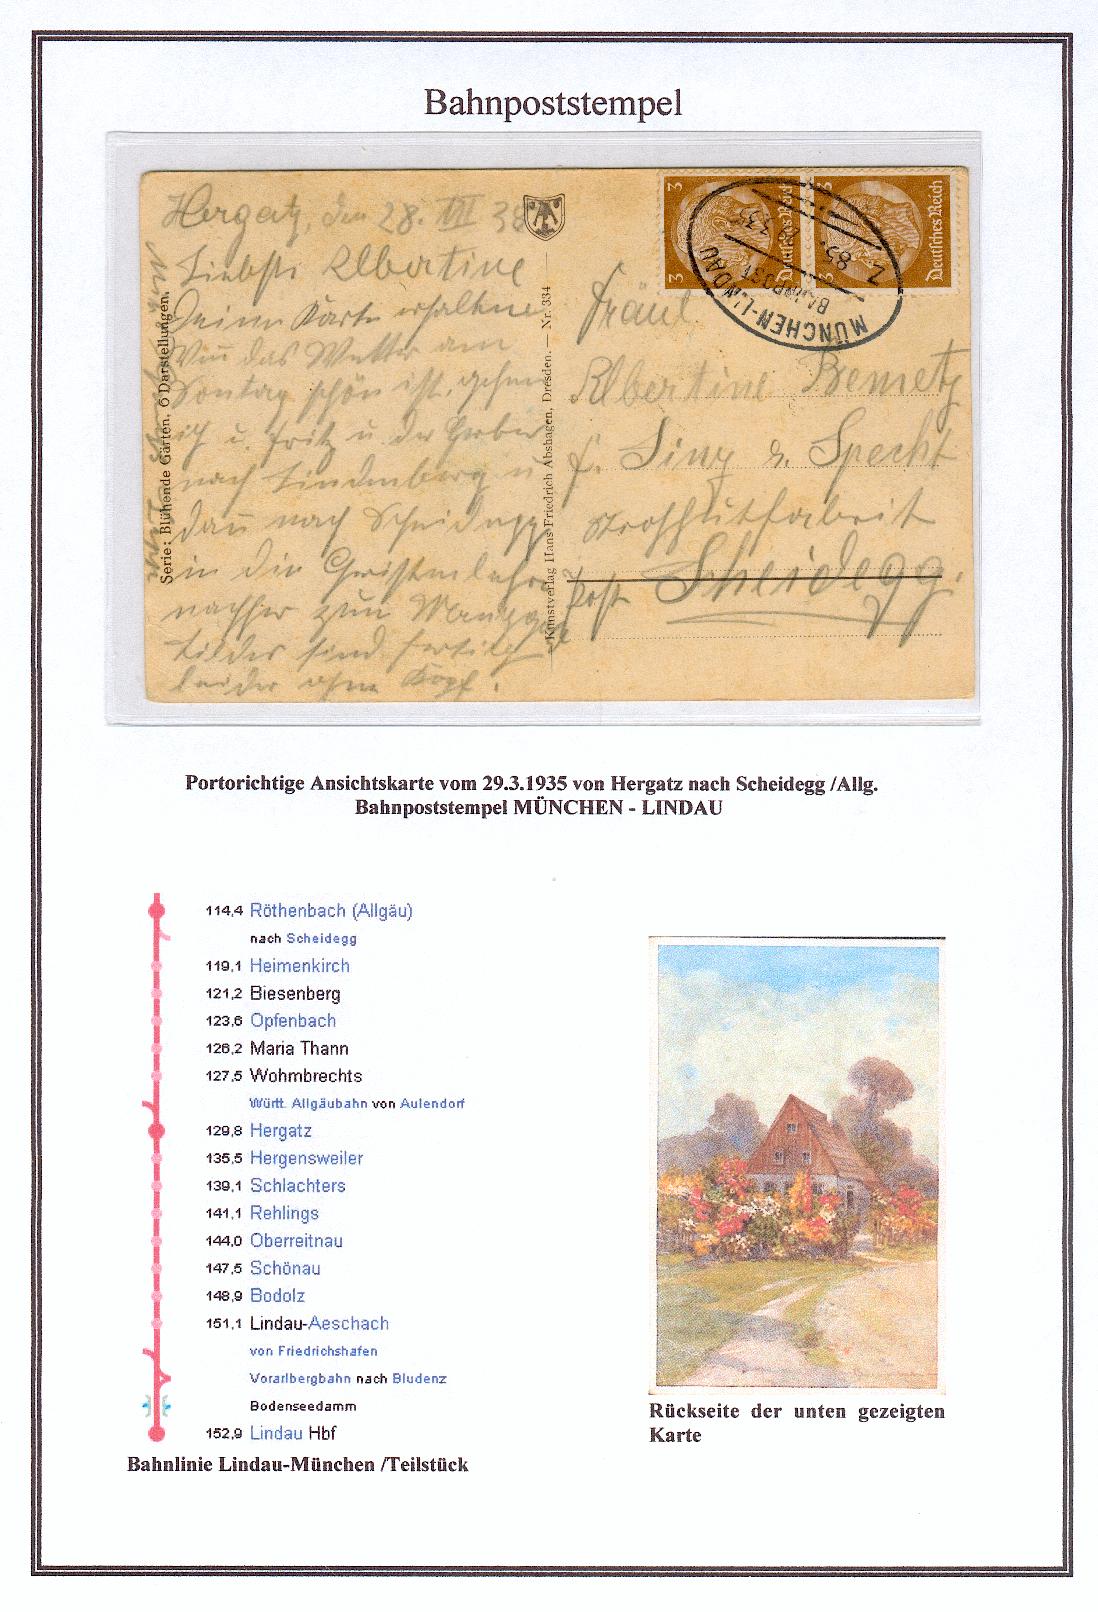 Bahnpoststempel
Hergatz, den 28. VIII 38
Liebste Albertine
Deine Karte erhalten
Wen das Wetter am
Sontag schön ist, gehen
ich u. Fritz u. der
nach Lindenberg u
dan nach Scheidegg
in die
nachher zum
bilder sind fertig
leider ohne Kopf.
Serie: Blühende Gärten, 6 Darstellungen.
Kunstverlag Hans Friedrich Abshagen, Dresden. — Nr. 334
3 Deutsches Reich 3
3 Deutsches Reich 3
MÜNCHEN-LINDAU
BAHNPOST
Z. 85.
Fräul
Albertine Bemetz
f. Sinz & Specht
Strohhutfabrik
Post Scheidegg.
Portorichtige Ansichtskarte vom 29.3.1935 von Hergatz nach Scheidegg /Allg.
Bahnpoststempel MÜNCHEN - LINDAU
114,4 Röthenbach (Allgäu)
nach Scheidegg
119,1 Heimenkirch
121,2 Biesenberg
123,6 Opfenbach
126,2 Maria Thann
127,5 Wohmbrechts
Württ. Allgäubahn von Aulendorf
129,8 Hergatz
135,5 Hergensweiler
139,1 Schlachters
141,1 Rehlings
144,0 Oberreitnau
147,5 Schönau
148,9 Bodolz
151,1 Lindau-Aeschach
von Friedrichshafen
Vorarlbergbahn nach Bludenz
Bodenseedamm
152,9 Lindau Hbf
Bahnlinie Lindau-München /Teilstück
Rückseite der unten gezeigten
Karte